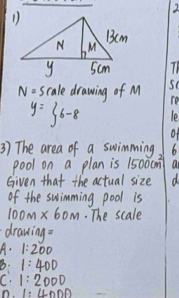 1)
13cm
N
M
y
5cm
N = scale drawing of M
y = { 6-8
3) The area of a swimming
pool on a plan is 1500cm²
Given that the actual size
of the swimming pool is
100m x 60m. The scale
drawing =
A. 1:200
B. 1:400
C. 1:2000
D. 1:4000